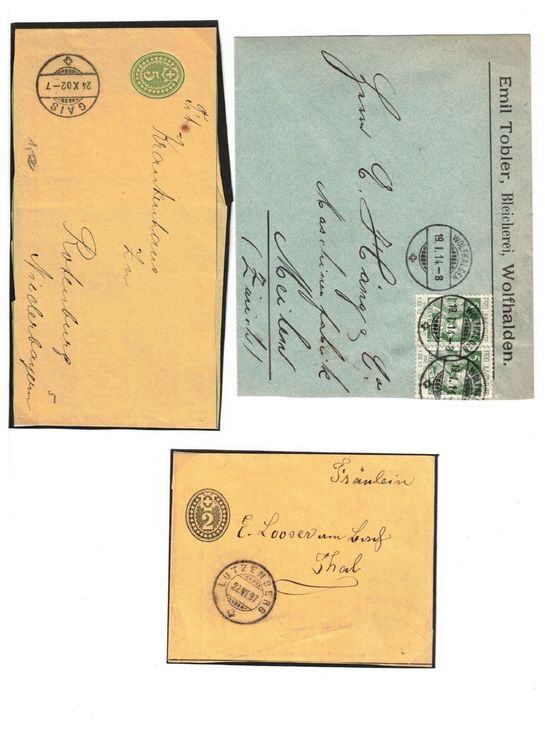 5
GAIS
24.X.02-7
Krankenhaus
in
Rottenburg
Niederbayern
5
Emil Tobler, Bleicherei, Wolfhalden.
Herrn
Maschinenfabrik
Meilen
(Zürich)
WOLFHALDEN
19.I.14-8
2
Fräulein
E. Looser am Bach
Thal
LUTZENBERG
22.VI.97